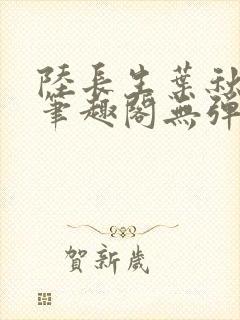 陸長生葉秋
筆趣閣無彈
賀新歲